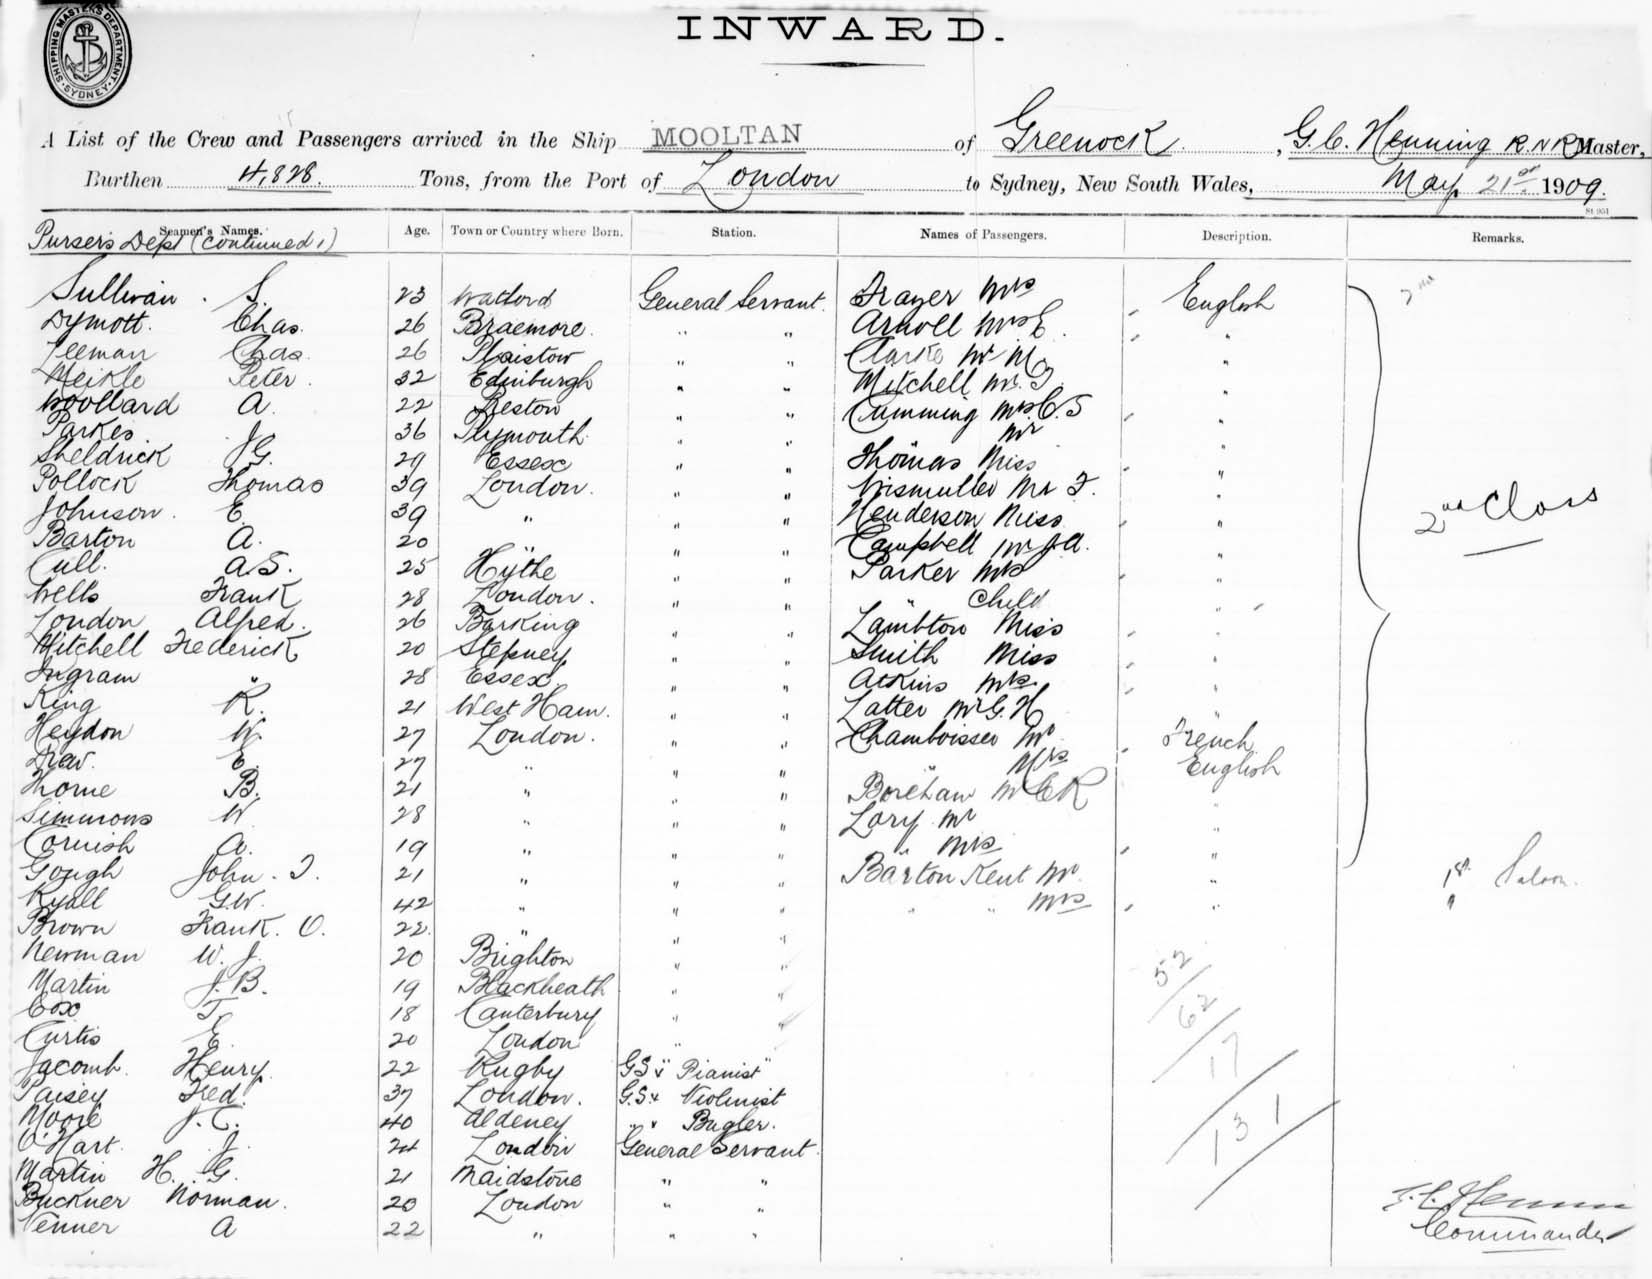 SHIPPING MASTERS DEPARTMENT SYDNEY
INWARD.
A List of the Crew and Passengers arrived in the Ship MOOLTAN of Greenock, G. C. Henning R.N.R Master,
Burthen 4,828. Tons, from the Port of London to Sydney, New South Wales, May 21st 1909.
St 951
Seamen's Names. Age. Town or Country where Born. Station. Names of Passengers. Description. Remarks.
Pursers Dept (continued 1)
Sullivan S. 23 Watford General Servant Frayer Mrs English 2nd
Dymott. Chas. 26 Braemore. " " Arnoll Mrs E. "
Leeman Chas. 26 Plaistow " " Clarke Mr M "
Meikle Peter. 32 Edinburgh " " Mitchell Mr. J. "
Woollard A. 22 Beston " " Cumming Mrs C. S "
Parkes J. 36 Plymouth " " " Mr "
Sheldrick G. 29 Essex " " Thomas Miss "
Pollock Thomas 39 London. " " Wismuller Mr F. "
Johnson. E. 39 " " " Henderson Miss " 2nd Class
Barton A. 20 " " " Campbell Mr J. A. "
Cull. A. S. 25 Hythe " " Parker Mrs "
Wells Frank 28 London. " " " Child "
London Alfred. 26 Barking " " Lambton Miss "
Mitchell Frederick 20 Stepney " " Smith Miss "
Ingram " 28 Essex " " Atkins Mrs "
King R. 21 West Ham. " " Latter Mr G. H "
Heydon W. 27 London. " " Chamboisser Mr French
Drew. E. 27 " " " " Mrs English
Thorne B. 21 " " " Boreham Mr C R "
Simmons W 28 " " " Lory Mr "
Cornish A. 19 " " " " Mrs "
Gough John. J. 21 " " " Barton Kent Mr. " 1st Saloon.
Ryall G.W. 42 " " " " " Mrs " "
Brown Frank. O. 22. " " "
Newman W. J. 20 Brighton " "
Martin J. B. 19 Blackheath " "
Cox T. 18 Canterbury " "
Curtis E. 20 London " "
Jacomb. Henry. 22 Rugby G.S & "Pianist"
Paisey Fred. 37 London. G.S. & Violinist
Moore J. C. 40 Aldeney " " Bugler.
O'Hart. J. 24 London General Servant.
Martin H. G. 21 Maidstone " "
Buckner Norman. 20 London " "
Venner A 22 " " "
52
62
17
131
G. C. Henning
Commander